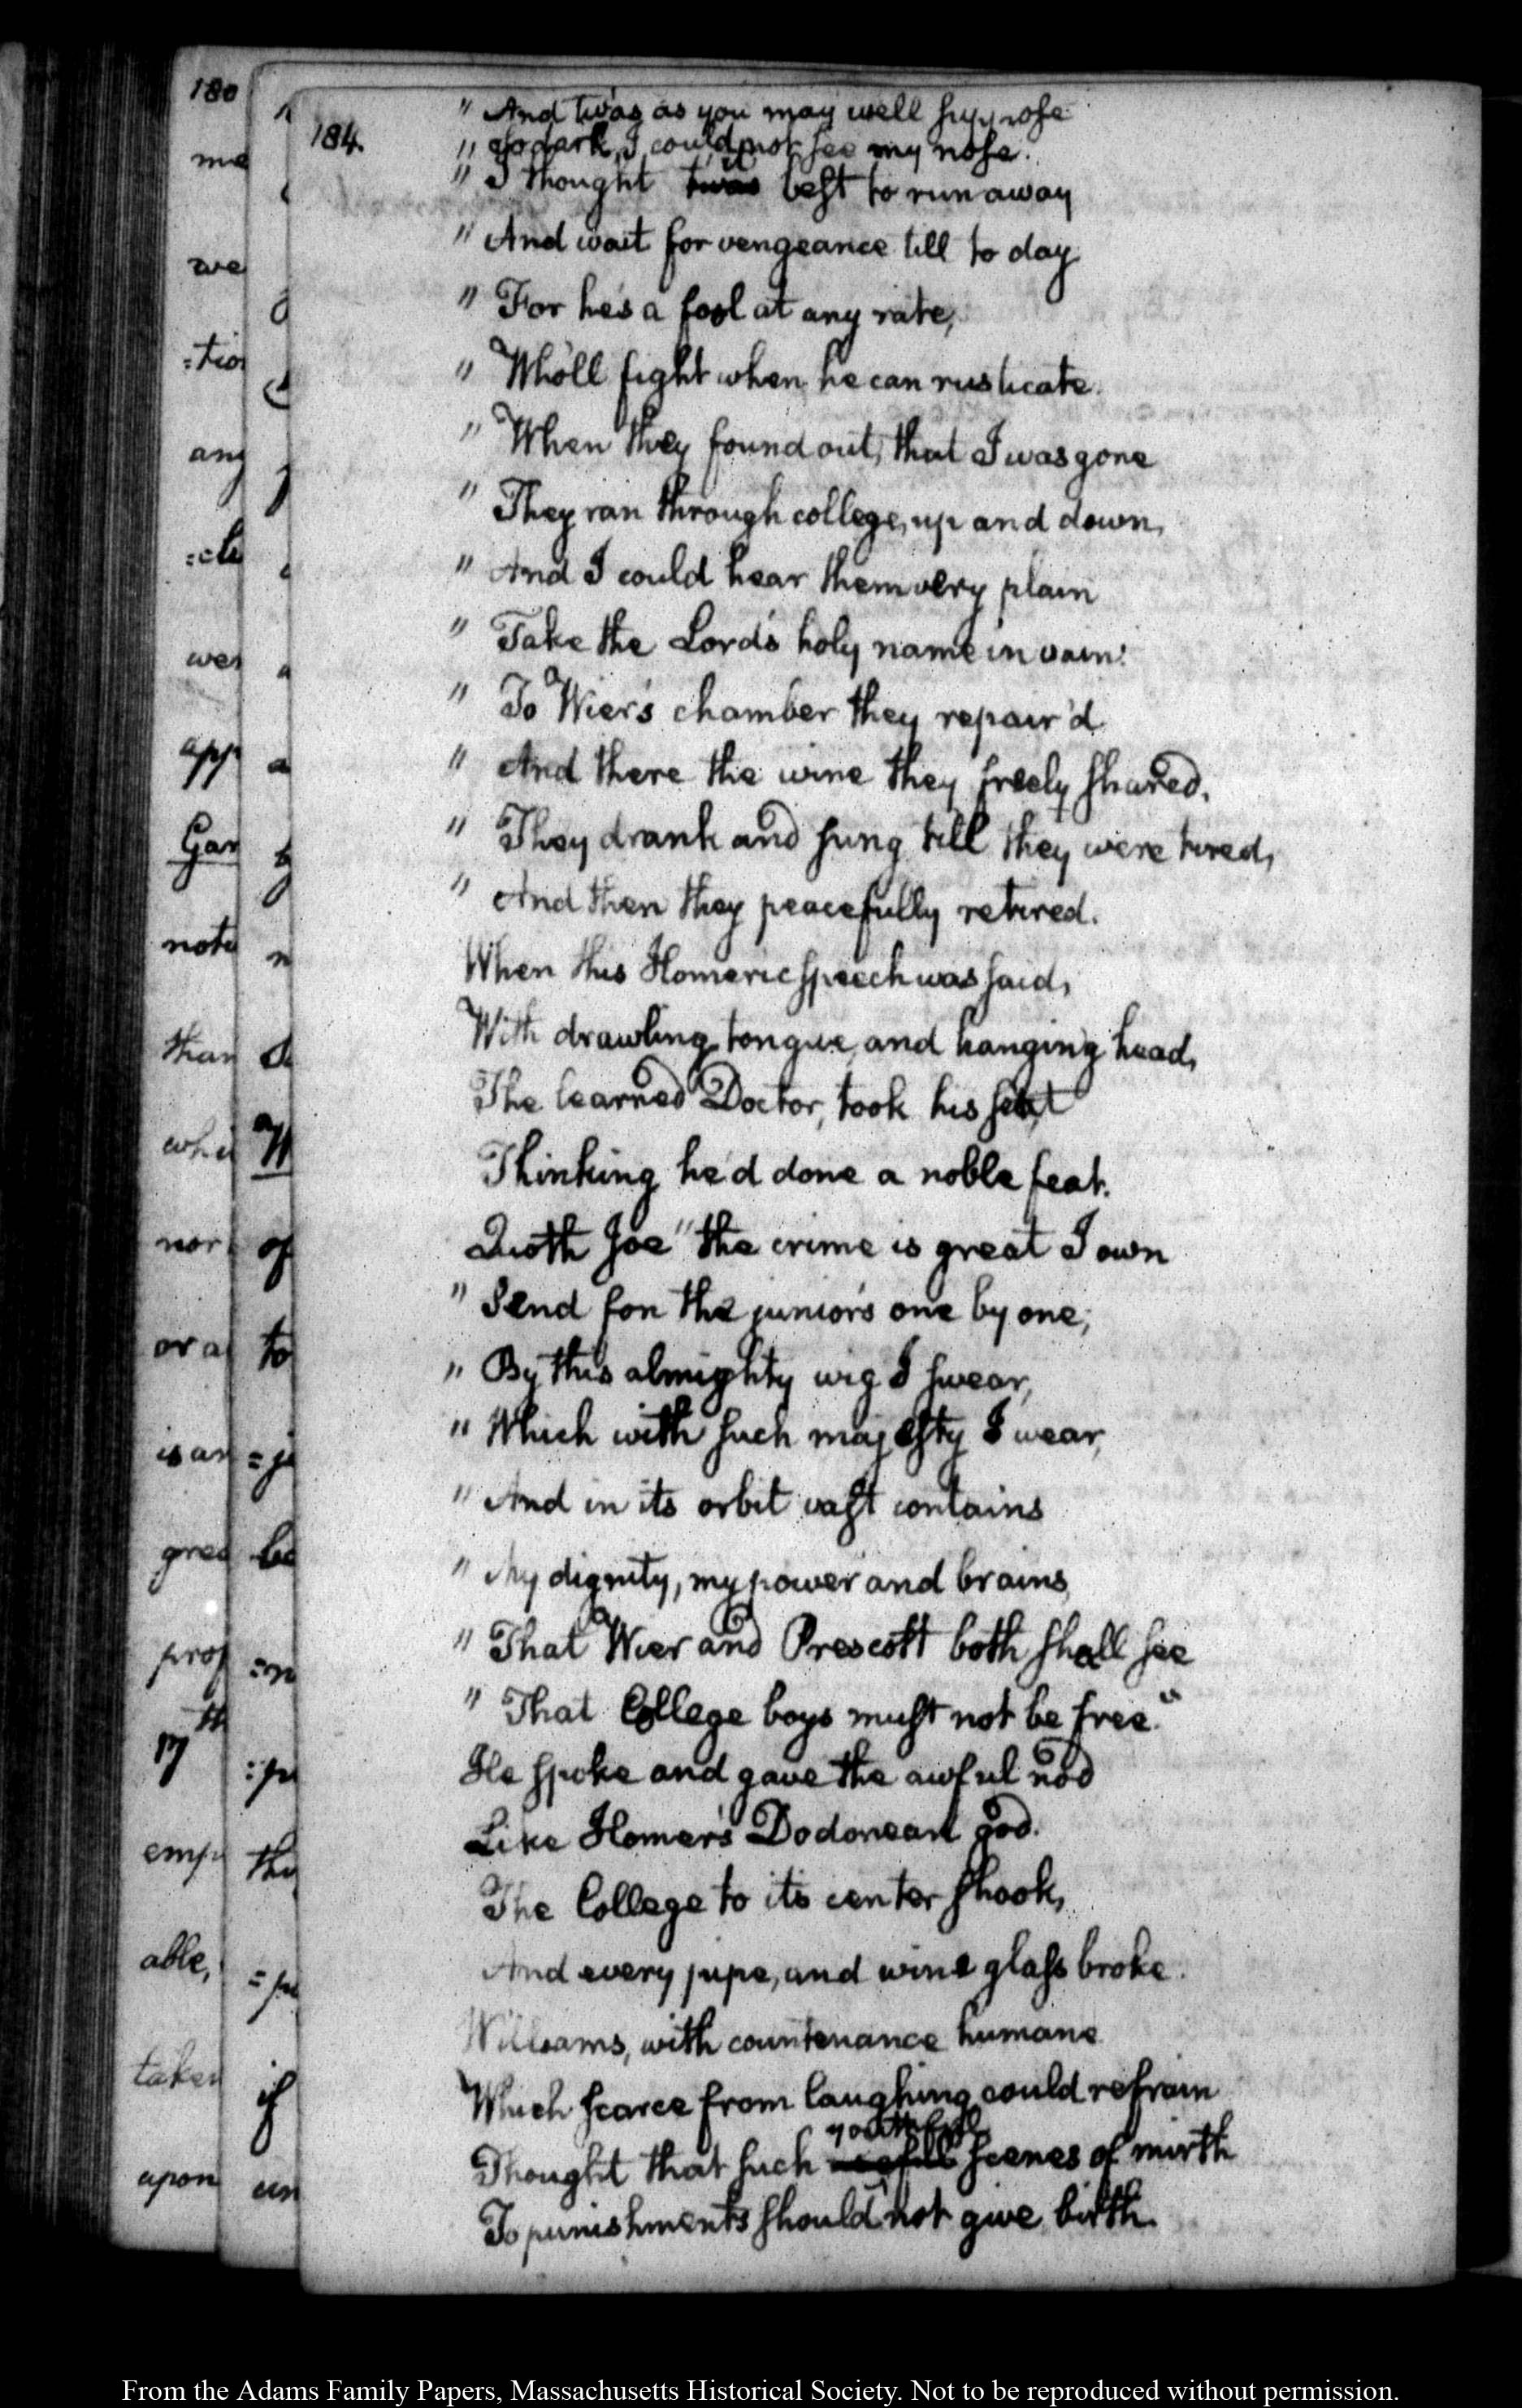 184.
" And twas as you may well suppose
" So dark, I could not see my nose.
" I thought it best to run away
" And wait for vengeance till to day
" For he's a fool at any rate,
" Who'll fight when he can rusticate.
" When they found out, that I was gone
" They ran through college, up and down,
" And I could hear them very plain
" Take the Lord's holy name in vain.
" To Wier's chamber they repair'd
" And there the wine they freely shared,
" They drank and sung till they were tired,
" And then they peacefully retired.
When this Homeric speech was said,
With drawling tongue, and hanging head,
The learned Doctor, took his seat
Thinking he'd done a noble feat.
Quoth Joe "the crime is great I own
" Send for the juniors one by one;
" By this almighty wig I swear,
" Which with such majesty I wear,
" And in its orbit vast contains
" My dignity, my power and brains,
" That Wier and Prescott both shall see
" That College boys must not be free."
He spoke and gave the awful nod
Like Homer's Dodonean god.
The College to its center shook,
And every pipe, and wine glass broke.
Williams, with countenance humane
Which scarce from laughing could refrain
Thought that such youthful scenes of mirth
To punishments should not give birth.
180
me
we
:tion
any
wer
app
Gar
note
than
whi
nor
or a
is an
grea
prof
17th
emp
able,
taken
upon
of
to
be
the
if
un
From the Adams Family Papers, Massachusetts Historical Society. Not to be reproduced without permission.